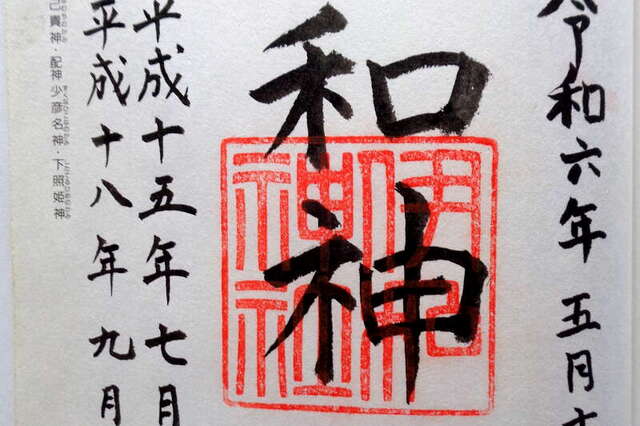 令和六年五月十
和神
伊和神社
平成十五年七月
平成十八年九月
己貴神・配神 少彦名神・下照姫神